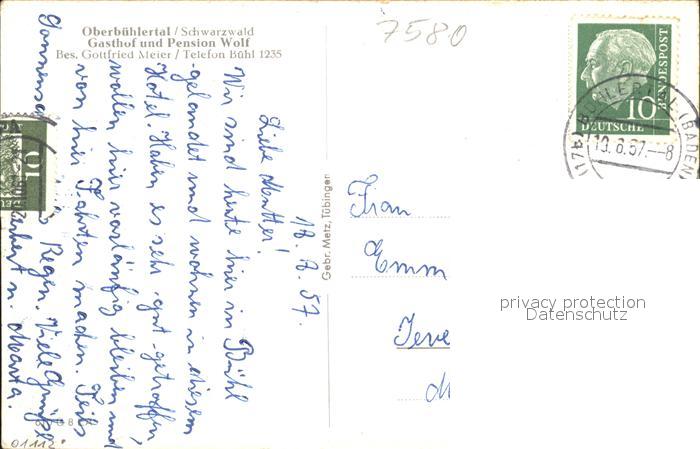 Oberbühlertal / Schwarzwald
Gasthof und Pension Wolf
Bes. Gottfried Meier / Telefon Bühl 1235
7580
18. 8. 57.
Liebe Mutter!
Wir sind heute hier in Bühl
gelandet und wohnen in diesem
Hotel. Haben es sehr gut getroffen,
wollen hier vorläufig bleiben und
von hier Fahrten machen. Teils
Regen. Viele Grüße
u. Marta.
Gebr. Metz, Tübingen
Frau
Emm
Jeve
M
10
DEUTSCHE
BUNDESPOST
(BADEN)
19.8.57.--8
10
privacy protection
Datenschutz
01112